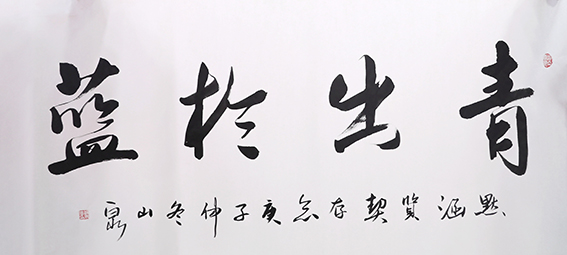 青出於藍
默涵賢契存念庚子仲冬山泉